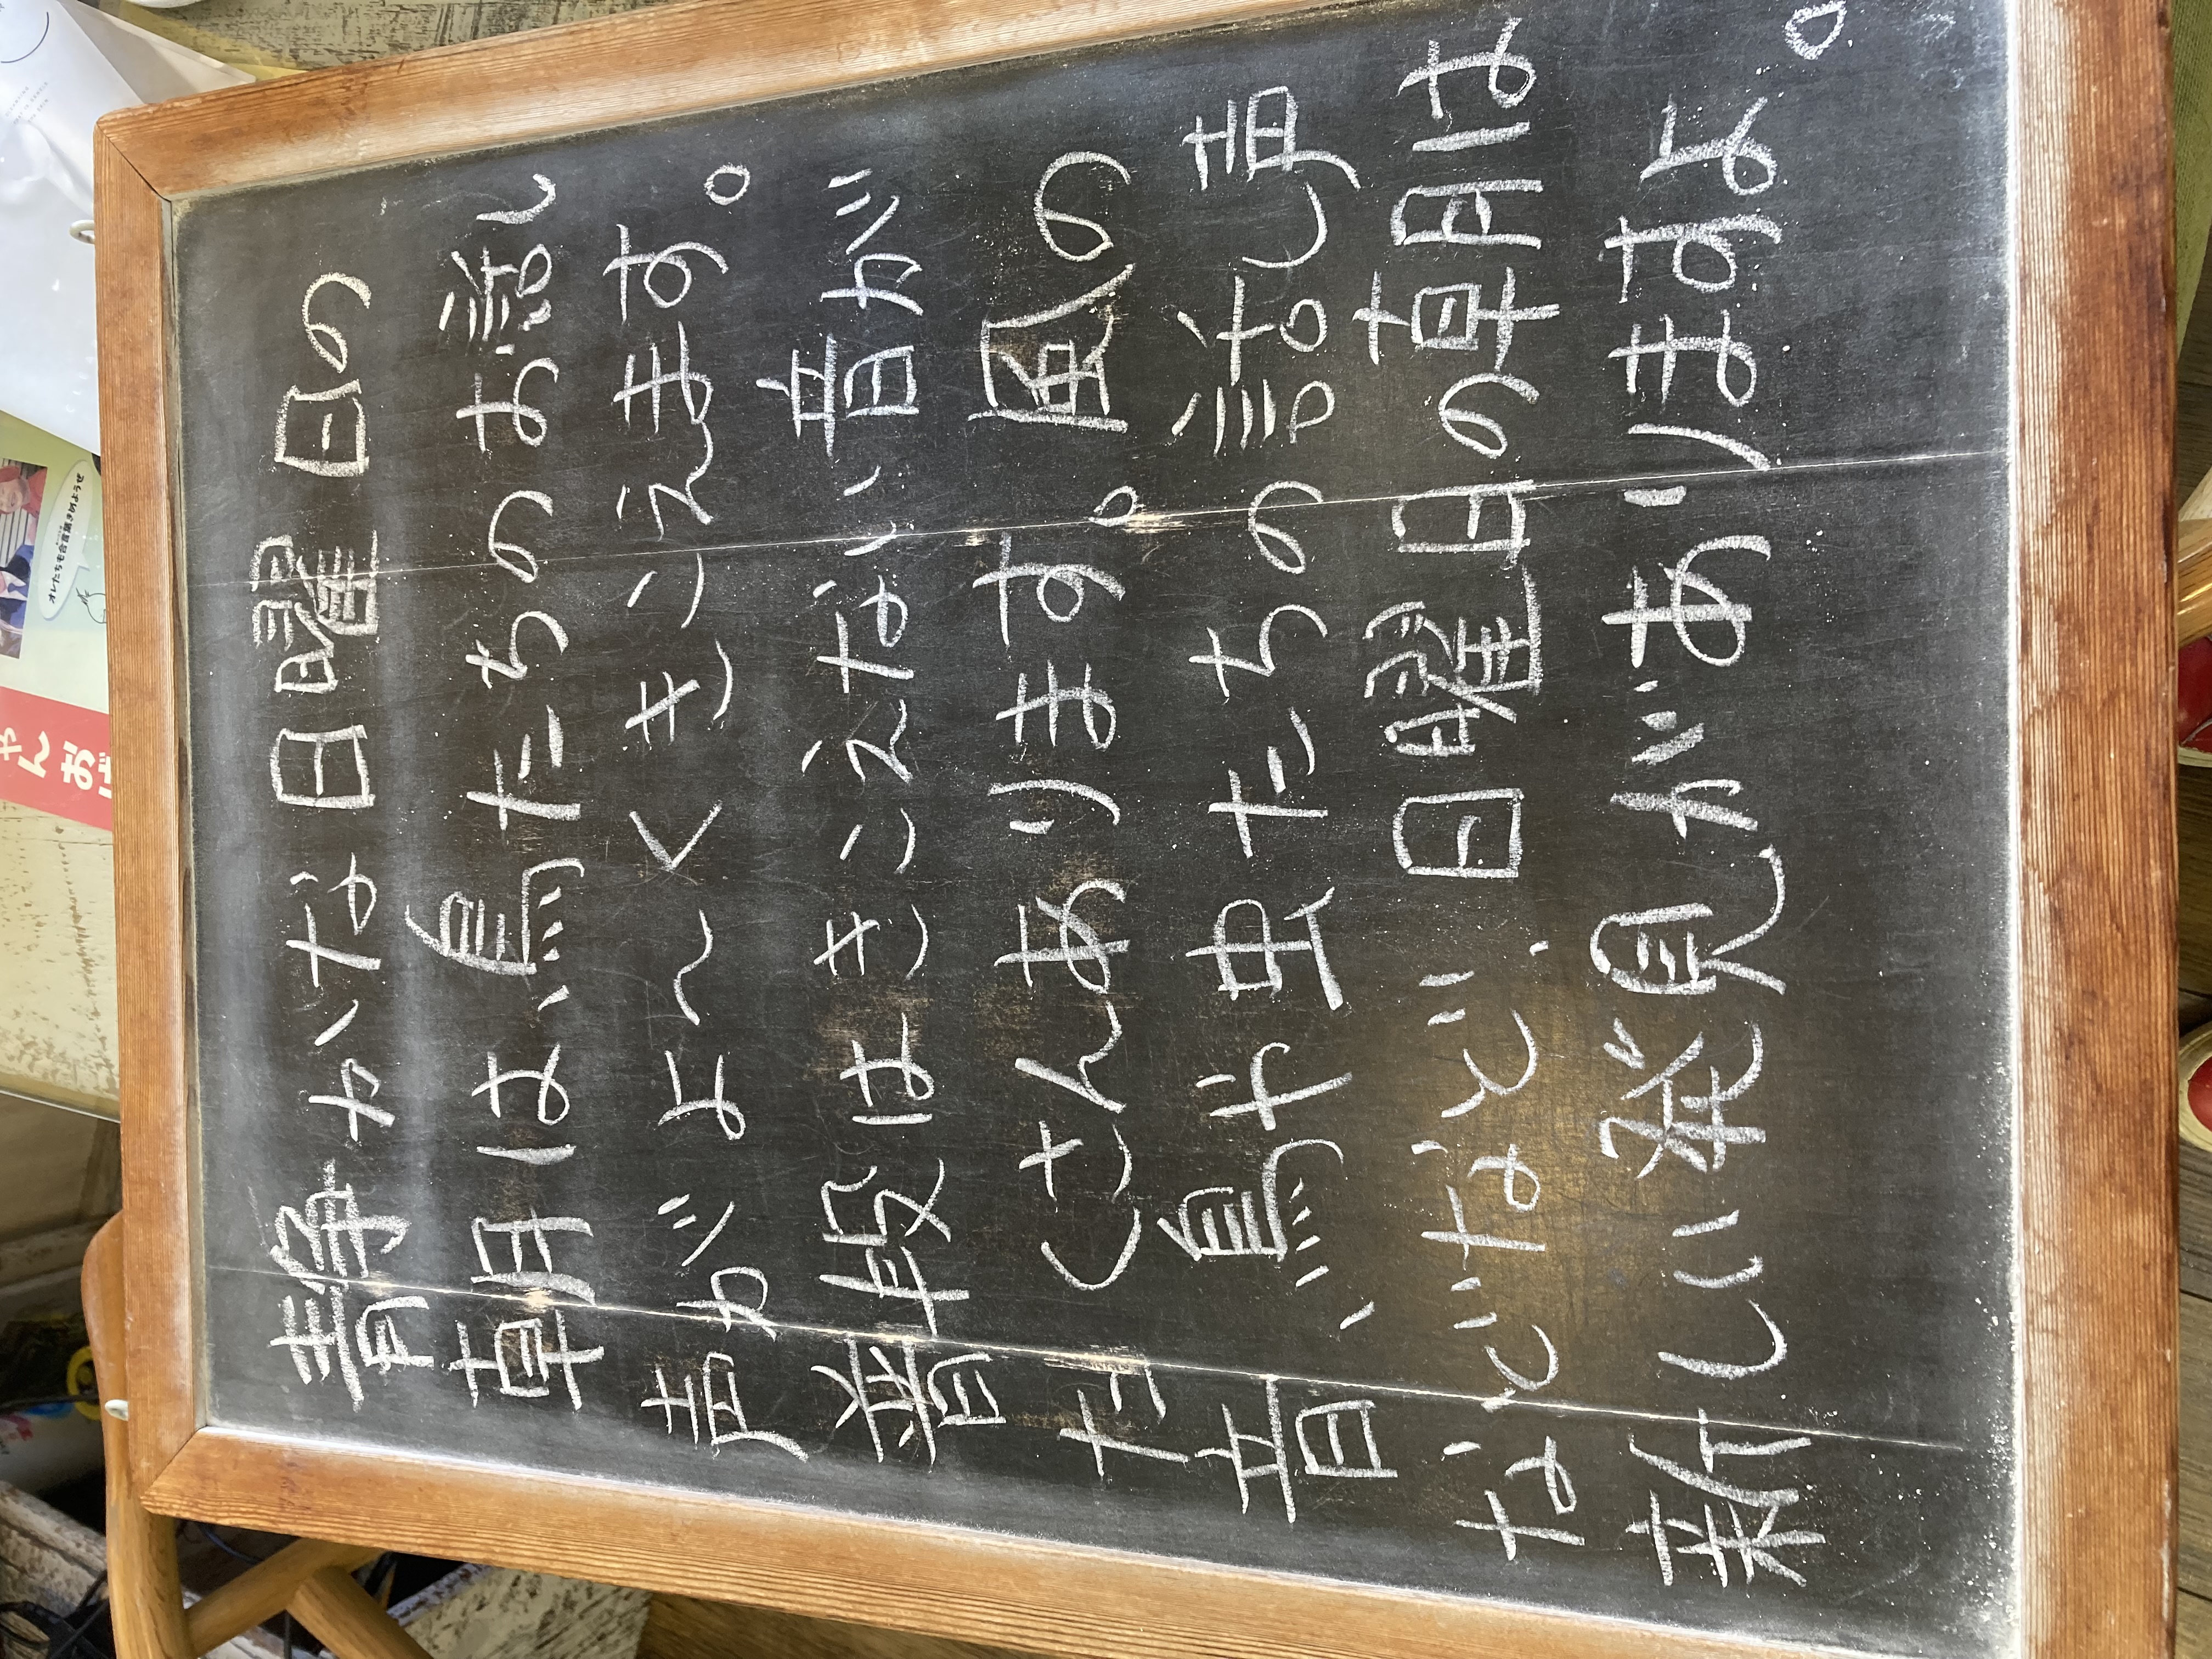 静かな日曜日の
朝は、鳥たちのお話し
声がよ〜くきこえます。
普段はきこえない音が
たくさんあります。風の
音、鳥や虫たちの話し声
などなど、日曜日の朝は
新しい発見がありますよ。
オレたちも合言葉きめようぜ